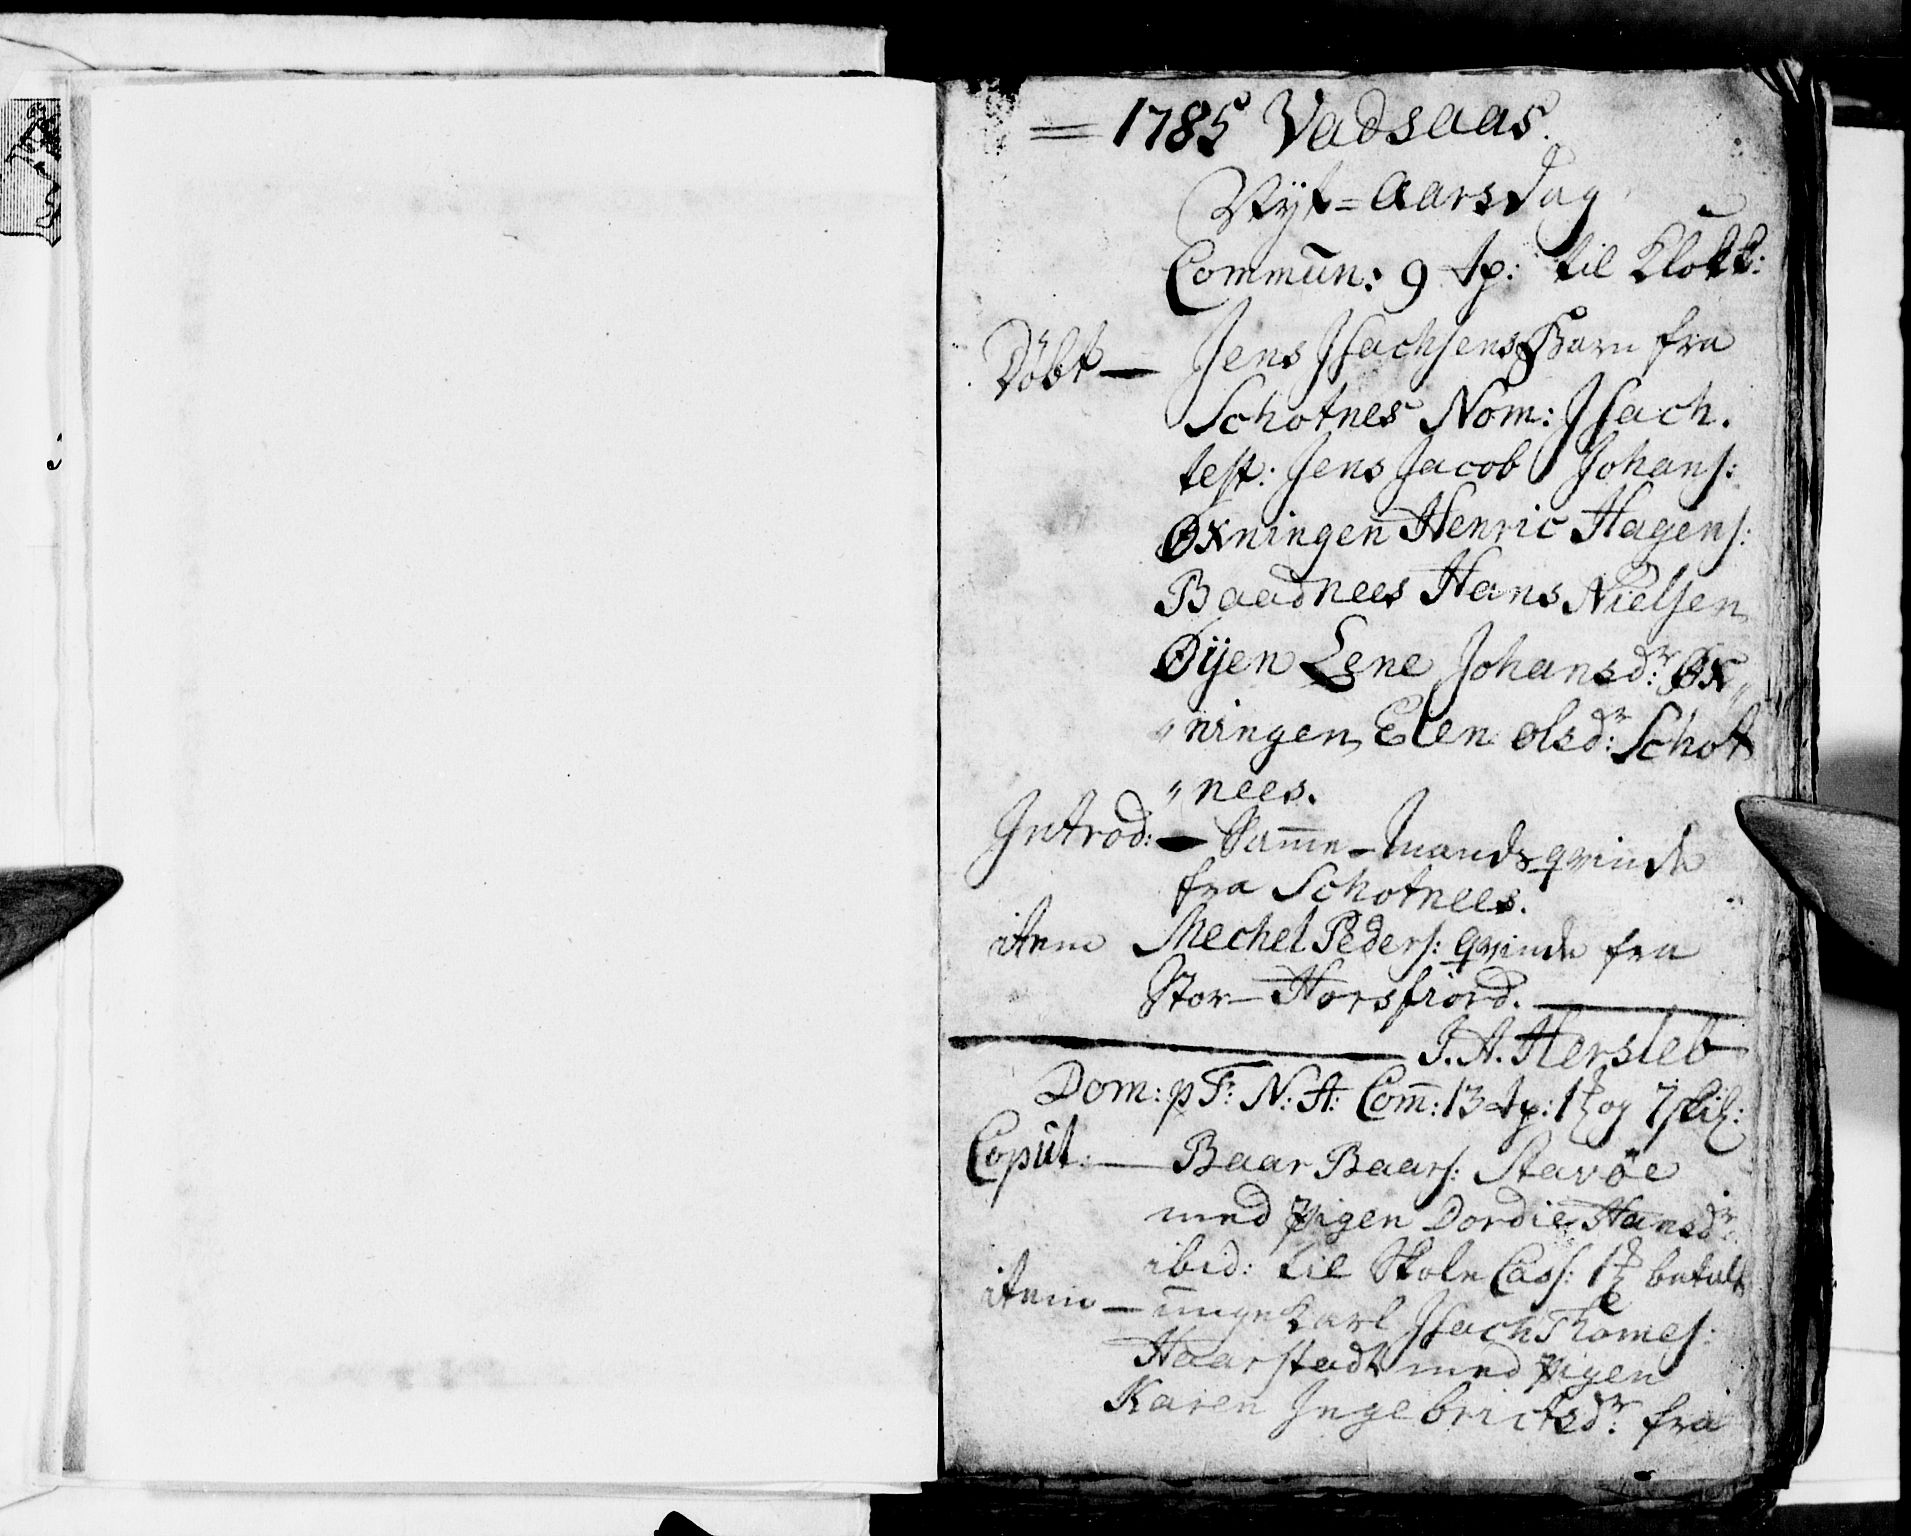 = 1785 Vadsaas.
Nyt=Aarsdag
Commūn: 9 sp: til Klokk:
Döbt — Jens Jsachsens Barn fra
Schotnes Nom: Jsach.
test: Jens Jacob Johans:
Øxningen Henric Hagens:
Baadnees Hans Nielsen
Øÿen Lene Johansdr: Øx„
„ningen, Elen olsdr: Schot
„nees.
Introd: — Sam̄e-mands qvinde
fra Schotnees.
item Mechel Peders: qvinde fra
Stor-Horsfiord. —
J. A. Hersleb
Dom: p F: N: A: Com̄: 13 sp: 1 og 7 skil:
Copūl: — Baar Baars: Stavöe
med pigen Dordie Hansdr:
ibid: til Skole Cass: 1 betalt
item — ūnge Karl Jsach Thomes:
Haarstadt med pigen
Karen Ingebrictsdr: fra